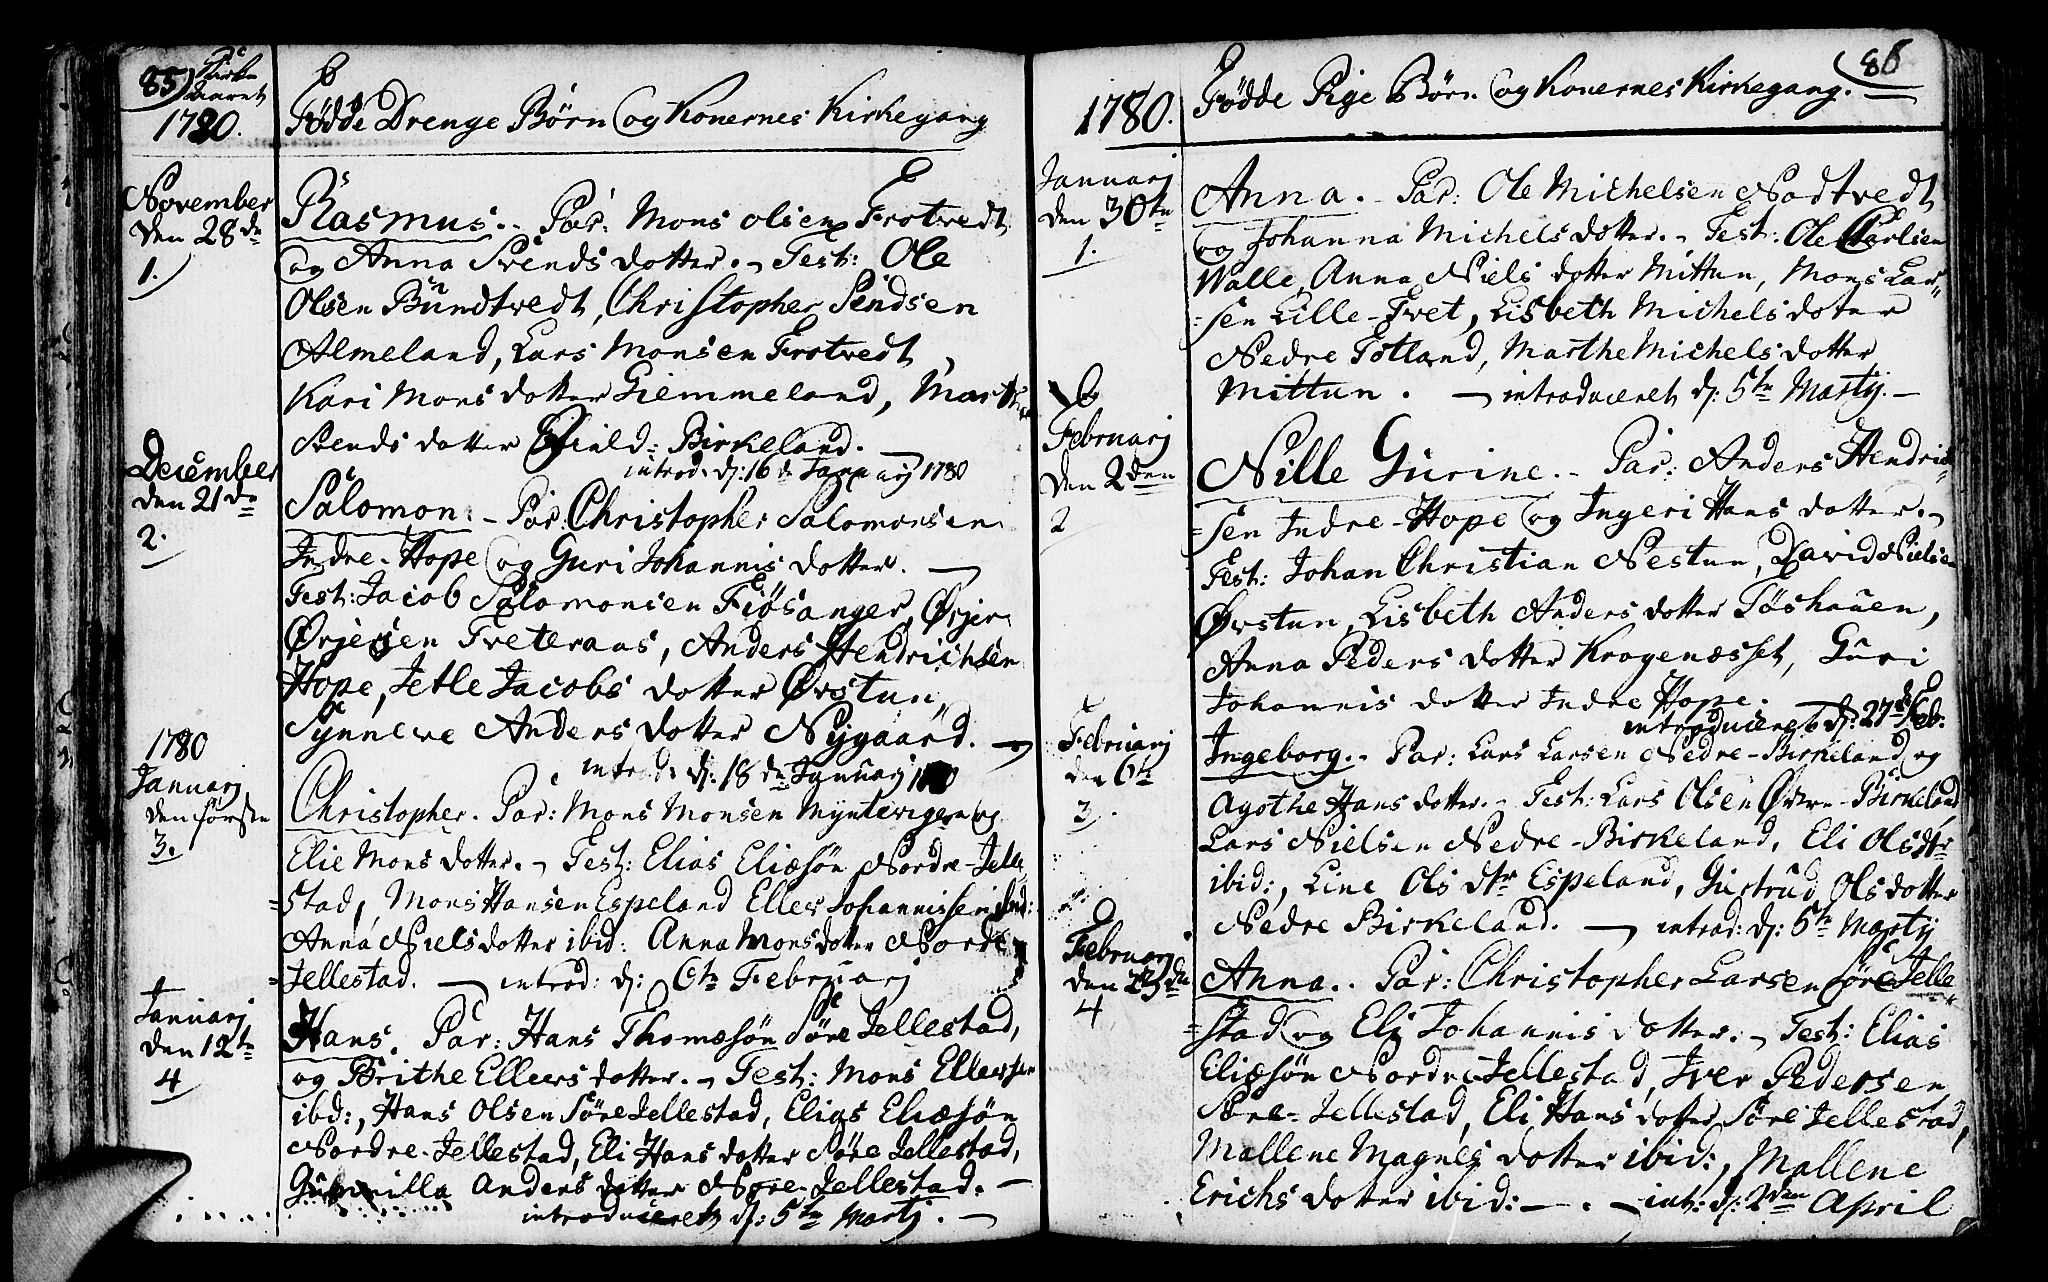 85) Kirke
Aaret
1780.
Fødde Drenge Børn og Konernes Kirkegang
November
den 28de
1.
Rasmus. - Par: Mons Olsen Frotvedt
og Anna Svends dotter. - Test: Ole
Olsen Bundtvedt, Christopher Sendsen
Almeland, Lars Monsen Frotvedt,
Kari Mons dotter Giemmeland, Marthe
Svends dotter Birkeland. -
introd. d: 16de Januarj 1780
December
den 21de
2.
Salomon. - Par: Christopher Salomonsen
Indre-Hope og Guri Johannis dotter. -
Test: Jacob Salomonsen Fiøsanger, Ørjer
Ørjersen Tveteraas, Anders Hendrichsen
Hope, Jetle Jacobs dotter Ørstun,
Synneve Anders dotter Nygaard. -
introd: d: 18de Januarj
1780
Januarj
den første
3.
Christopher. Par: Mons Monsen Myntevigen og
Elie Mons dotter. - Test: Elias Eliæsøn Nordre-Jelle
=stad, Mons Hansen Espeland Eller Johannissen ibid:
Anna Niels dotter ibid: Anna Mons dotter Nordre
Jellestad. - introd: d: 6te Februarj
Januarj
den 12te
4
Hans. Par: Hans Thomæsøn Søre Jellestad,
og Brithe Ellers dotter. - Test: Mons Ellersen
ibd:, Hans Olsen Søre Jellestad, Elias Eliæsøn
Nordre-Jellestad, Eli Hans dotter Søre Jellestad,
Anders dotter Nore-Jellestad. -
introduceret d: 5te Martj. -
86
1780.
Fødde Pige Børn og Konernes Kirkegang.
Januarj
den 30te
1.
Anna. - Par: Ole Michelsen Nodtvedt
og Johanna Michels dotter. - Test: Ole Carlsen
Walle, Anna Niels dotter Mittun, Mons Lar=
=sen Lille-Tvet, Lisbeth Michels doter
Nedre Totland, Marthe Michels dotter
Mittun. - introduceret d: 5te Martj. -
Februarj
den 2den
2
Nille Gurine. - Par: Anders Hendric=
=sen Indre-Hope og Ingeri Hans dotter. -
Test: Johan Christian Nestun, David Nielsen
Ørstun, Lisbeth Anders dotter Tøshauen,
Anna Peders dotter Krogenæsset, Guri
Johannis dotter Indre Hope. -
introduceret d: 27de Feb:
Februarj
den 6te
3.
Ingeborg. - Par: Lars Larsen Nedre-Birkeland og
Agothe Hans dotter. - Test: Lars Olsen Øvre-Birkeland
Lars Nielsen Nedre-Birkeland, Eli Ols dtr
ibid:, Line Ols dtr Espeland, Giertrud Ols dotter
Nedre Birkeland. - introd: d: 5te Martj
Februarj
den 23de
4
Anna. . Par: Christopher Larsen Søre Jelle=
=stad og Eli Johannis dotter. - Test: Elias
Eliæsøn Nordre Jellestad, Iver Pedersen
Søre-Jellestad, Eli Hans dotter Søre Jellestad,
Mallene Magnes dotter ibid:, Mallene
Erichs dotter ibid: - . - int: d: 2den April